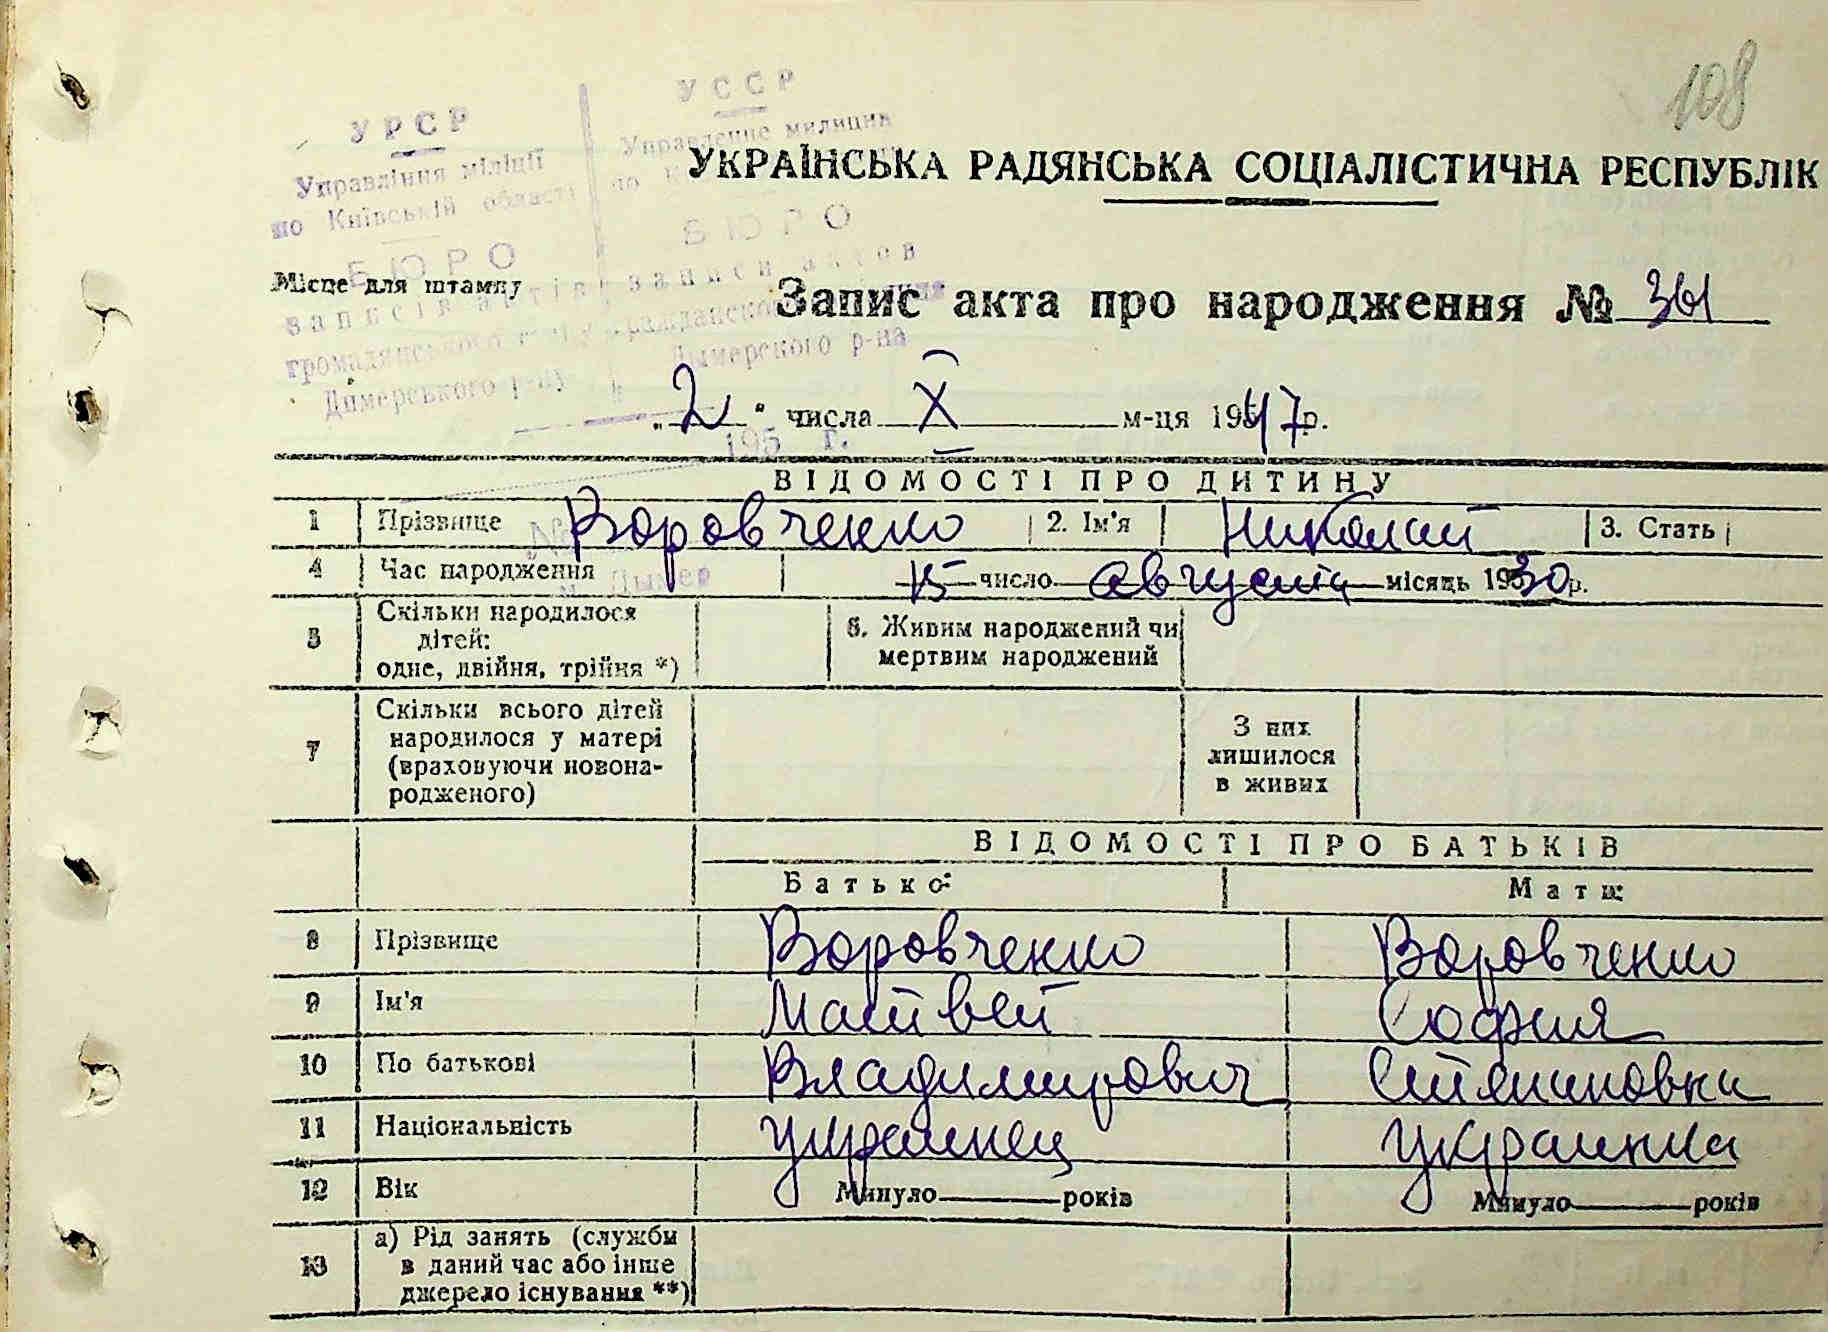 108
УРСР
Управління міліції
по Київській області
БЮРО
записів актів
громадянського
Димерського р-ну
УССР
Управление милиции
по
БЮРО
записи актов
гражданского
Дымерского р-на
195 г.
№
Дымер
УКРАЇНСЬКА РАДЯНСЬКА СОЦІАЛІСТИЧНА РЕСПУБЛІК
Місце для штампу
Запис акта про народження № 361
„2" числа X м-ця 1947р.
ВІДОМОСТІ ПРО ДИТИНУ
1 Прізвище Воровченко 2. Ім'я Николай 3. Стать
4 Час народження 15 число августа місяць 1930р.
5 Скільки народилося
дітей:
одне, двійня, трійня *)
6. Живим народжений чи
мертвим народжений
7 Скільки всього дітей
народилося у матері
(враховуючи новона-
родженого)
З них
лишилося
в живих
ВІДОМОСТІ ПРО БАТЬКІВ
Батько: Мати:
8 Прізвище Воровченко Воровченко
9 Ім'я Матвей София
10 По батькові Владимирович Степановна
11 Національність украинец украинка
12 Вік Минуло років Минуло років
13 а) Рід занять (служби
в даний час або інше
джерело існування **)